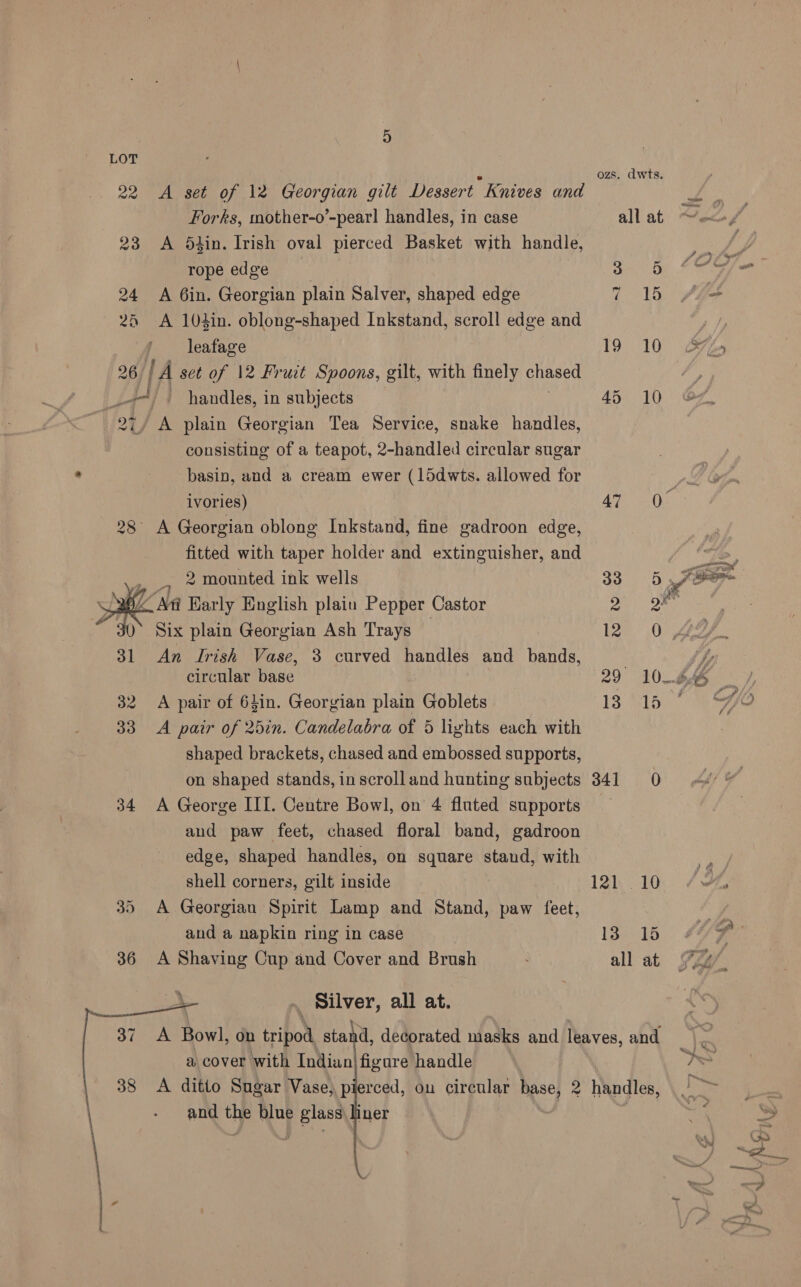 5
LOT
ozs. dwts.
22 A set of 12 Georgian gilt Dessert Knives and
Forks, mother-o'-pearl handles, in case all at
23 A 5½in. Irish oval pierced Basket with handle,
rope edge 3 5
24 A 6in. Georgian plain Salver, shaped edge 7 15
25 A 10½in. oblong-shaped Inkstand, scroll edge and
leafage 19 10
26 A set of 12 Fruit Spoons, gilt, with finely chased
handles, in subjects 45 10
27 A plain Georgian Tea Service, snake handles,
consisting of a teapot, 2-handled circular sugar
basin, and a cream ewer (15dwts. allowed for
ivories) 47 0
28 A Georgian oblong Inkstand, fine gadroon edge,
fitted with taper holder and extinguisher, and
2 mounted ink wells 33 5
An Early English plain Pepper Castor 2 2
30 Six plain Georgian Ash Trays 12 0
31 An Irish Vase, 3 curved handles and bands,
circular base 29 10
32 A pair of 6½in. Georgian plain Goblets 13 15
33 A pair of 25in. Candelabra of 5 lights each with
shaped brackets, chased and embossed supports,
on shaped stands, in scroll and hunting subjects 341 0
34 A George III. Centre Bowl, on 4 fluted supports
and paw feet, chased floral band, gadroon
edge, shaped handles, on square stand, with
shell corners, gilt inside 121 10
35 A Georgian Spirit Lamp and Stand, paw feet,
and a napkin ring in case 13 15
36 A Shaving Cup and Cover and Brush all at
Silver, all at.
37 A Bowl, on tripod stand, decorated masks and leaves, and
a cover with Indian figure handle
38 A ditto Sugar Vase, pierced, on circular base, 2 handles,
and the blue glass liner